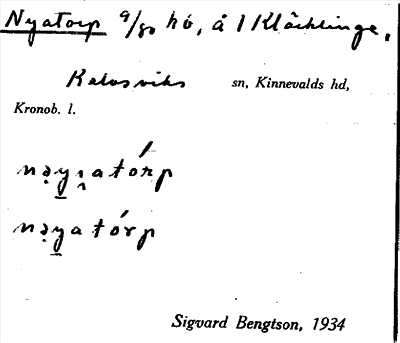 Nyatorp 9/80 hb, å 1 Kläcklinge,
Kalvsviks sn, Kinnevalds hd,
Kronob. l.
nayatórp
nayatórp
Sigvard Bengtson, 1934